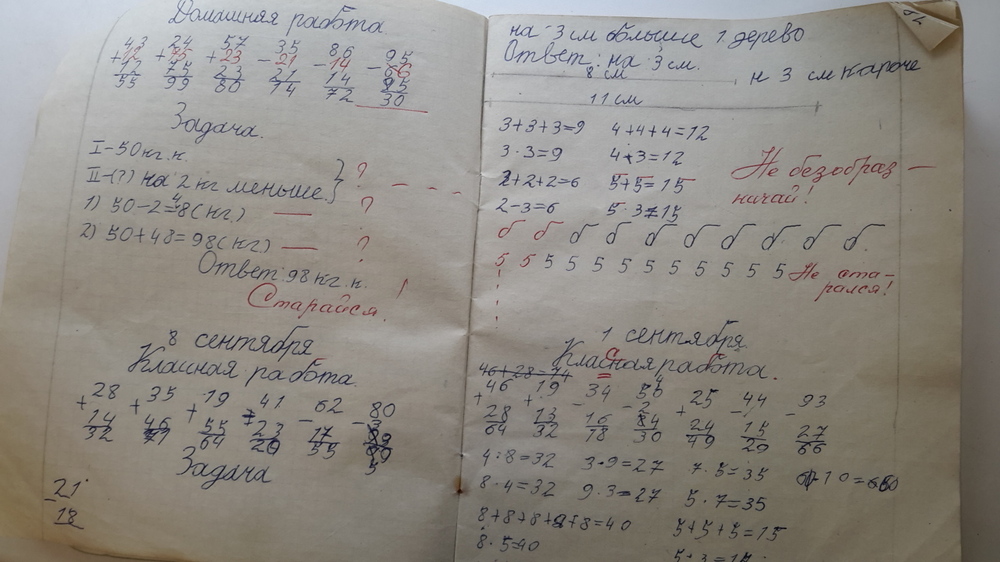 Домашняя работа
43 24 57 35 86 95
+12 +75 +23 -21 -14 -65
55 99 80 14 72 30
Задача.
I-50кг.к.
II-(?) на 2 кг меньше. } ?
1) 50-2=48(кг.) — ?
2) 50+48=98(кг) — ?
Ответ: 98кг.к.
Старайся!
8 сентября
Класная работа.
+28 +35 +19 41 62 80
14 46 55 23 -17
32 64 20 55 5
Задача
21
18
на 3 см больше 1 дерево
Ответ: на 3 см.
8 см
н 3 см кароче
11 см
3+3+3=9 4+4+4=12
3·3=9 4·3=12
2+2+2=6 5+5=15
2-3=6 5·3=15
Не безобраз-
ничай!
б б б б б б б б б б
5 5 5 5 5 5 5 5 5 5 5 5
Не ста-
рался!
1 сентября.
Класная работа.
с
46+28=74
+46 +19 -34 56 +25 44 -93
28 13 16 24 15 27
64 32 18 30 49 29 66
4·8=32 3·9=27 7·5=35
8·4=32 9·3=27 5·7=35
8+8+8+8+8=40 5+5+5=15
8·5=40